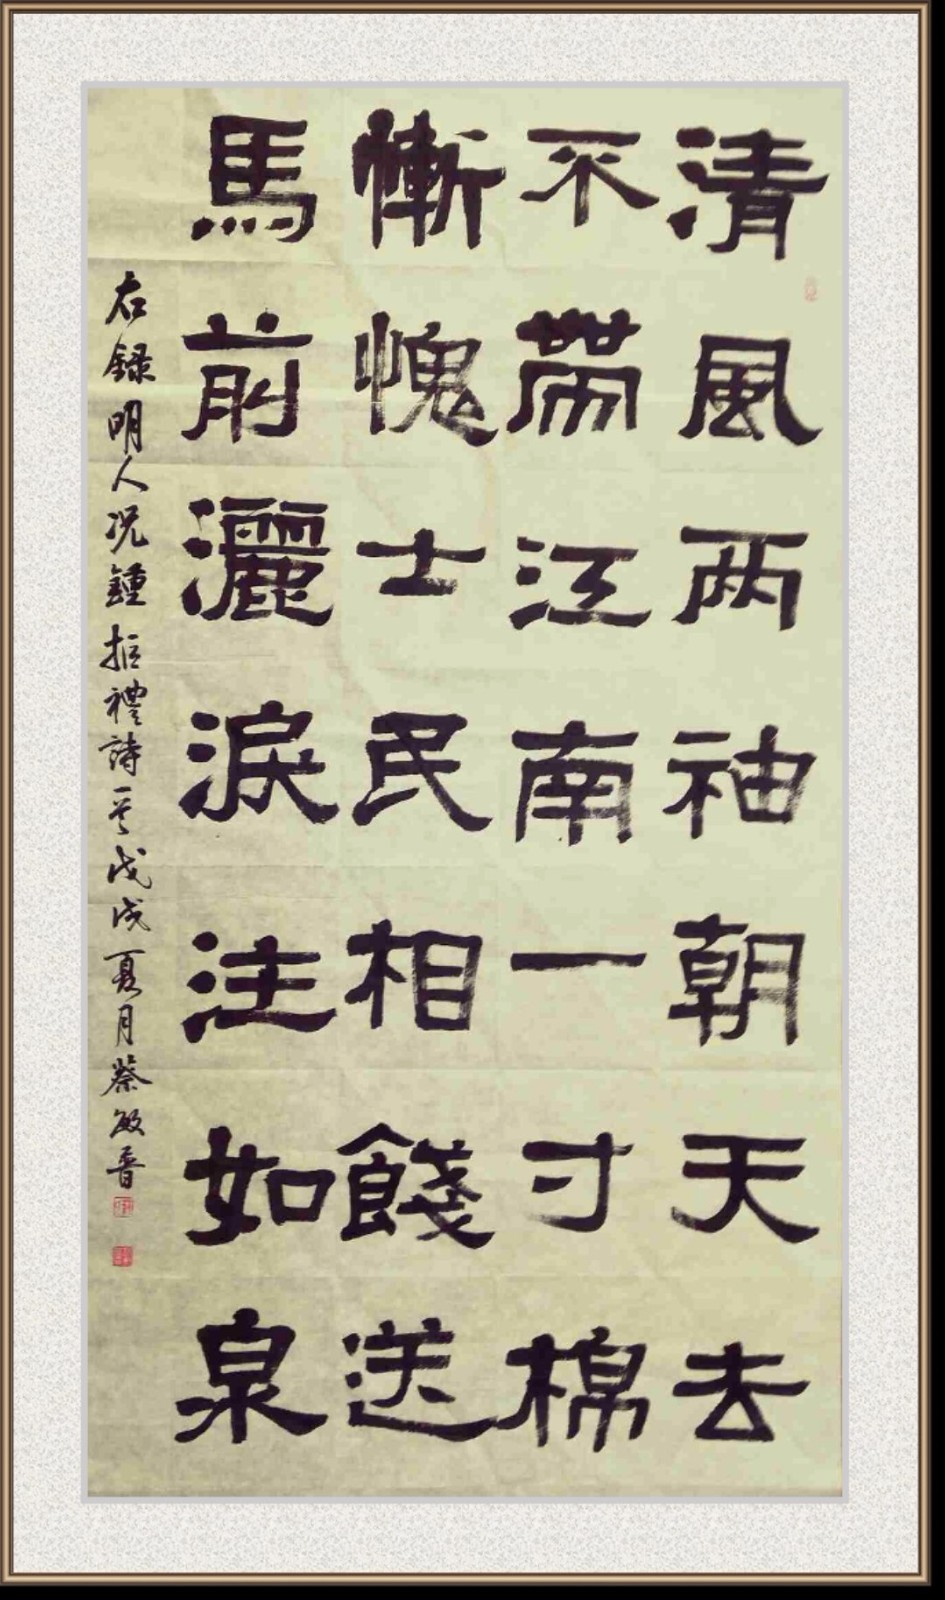 清風两袖朝天去
不帶江南一寸棉
慚愧士民相餞送
馬前灑淚注如泉
右録明人况鍾拒禮詩一首戊戌夏月蔡敏晋